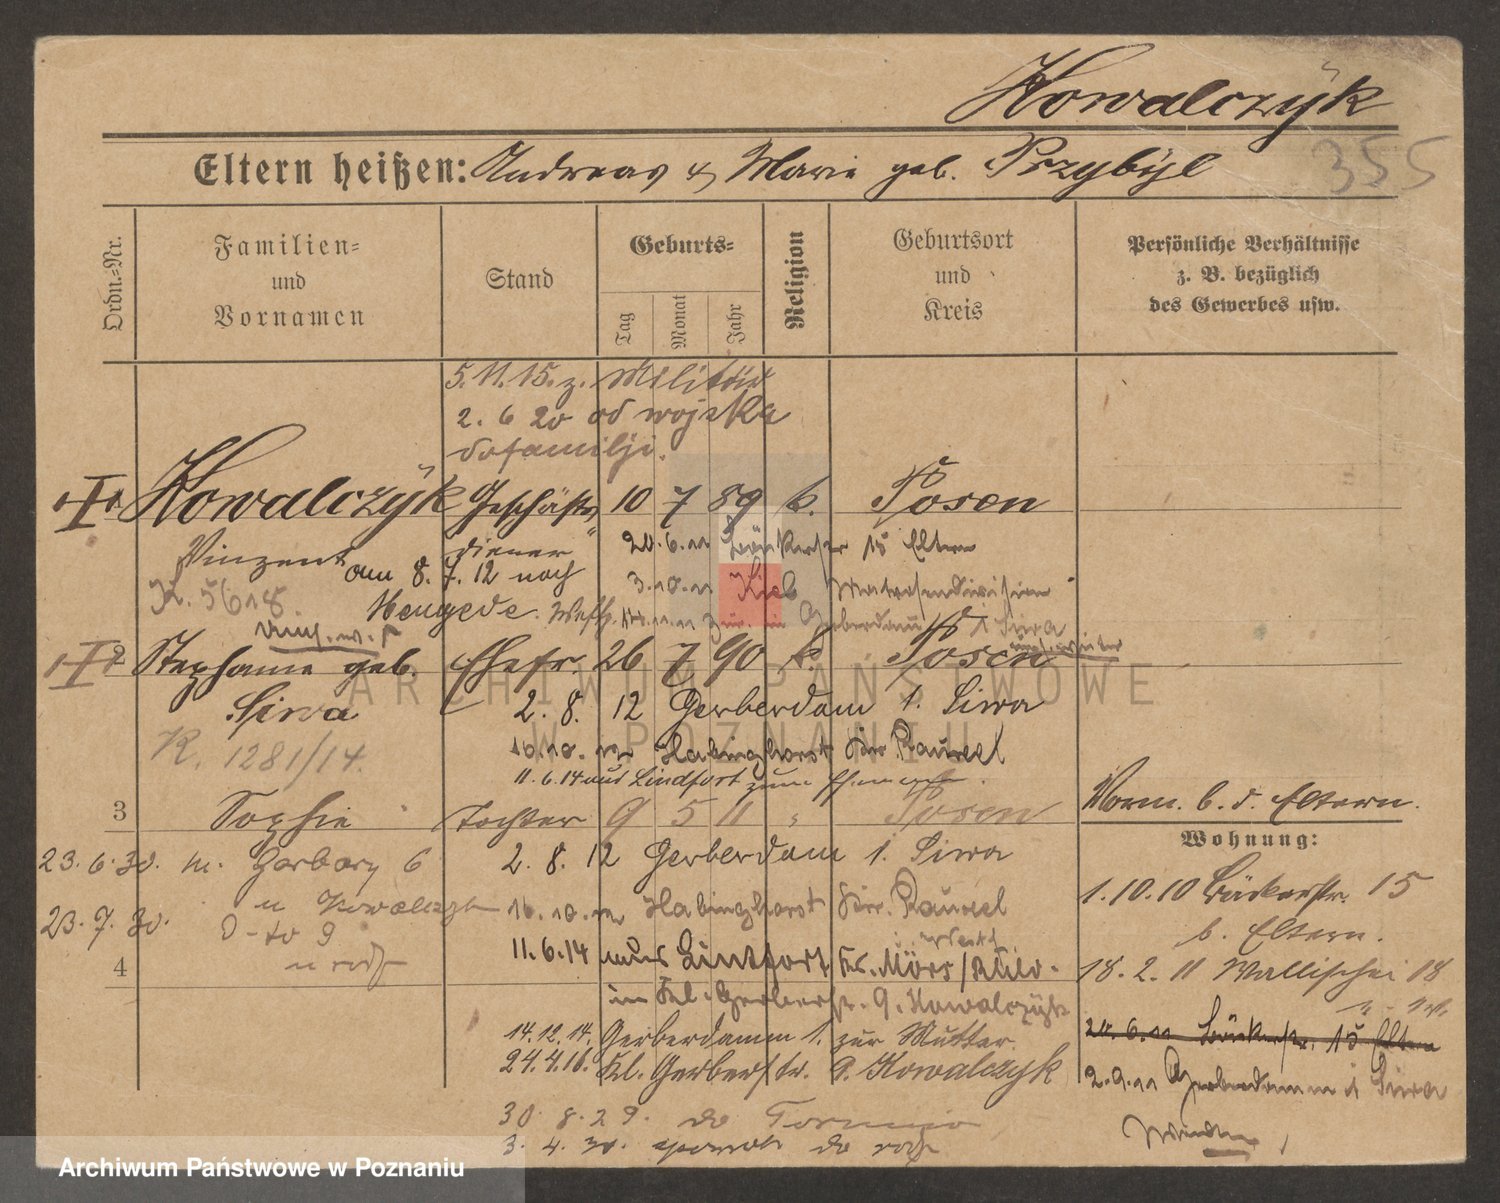 Kowalczyk
355
Eltern heißen: Andreas & Marie geb. Przybyl
Ordn.=Nr.
Familien=
und
Vornamen
Stand
Geburts=
Tag
Monat
Jahr
Religion
Geburtsort
und
Kreis
Persönliche Verhältnisse
z. B. bezüglich
des Gewerbes usw.
5.11.15. z. Militär
2. 6 20 od wojska
do familji.
Kowalczyk Geschäfts 10 7 89 k. Posen
Vinzent diener
20.6.11 Bäckerstr 15 Eltern
am 8. 7. 12 nach
3.10.11 Kiel Matrosendivision
K. 5618.
Mengede Westf.
zur. in Gerberdamm 1 Siwa
2 Stephanie geb. Ehefr. 26 7 90 k. Posen
Siwa
2. 8. 12 Gerberdam 1. Siwa
K. 1281/14.
16.10.12 Habinghorst Kr. Rauxel
11.6.14 aus Lindfort zum Ehemann
3 Sophie Tochter 9 5 11 " Posen
23.6.30. m. Garbary 6
2. 8. 12 Gerberdam 1. Siwa
u Kowalczyk
16.10.12 Habinghorst Kr. Rauxel
23.7.30.
Westf
4
11.6.14 aus Lintfort Kr. Mörs/
in Kl. Gerberstr. 9. Kowalczyk
14.12.14. Gerberdamm 1. zur Mutter.
24.4.16. Kl. Gerberstr. 9. Kowalczyk
30. 8. 29. do Torunia
3. 4. 30. do
Vorm. b. d. Eltern.
Wohnung:
1.10.10 Bäckerstr. 15
b. Eltern.
18. 2. 11 Wallischei 18
20.6.11 Bäckerstr. 15 Eltern
2.9.11 Gerberdamm 1 Siwa
ARCHIWUM PAŃSTWOWE
W POZNANIU
Archiwum Państwowe w Poznaniu